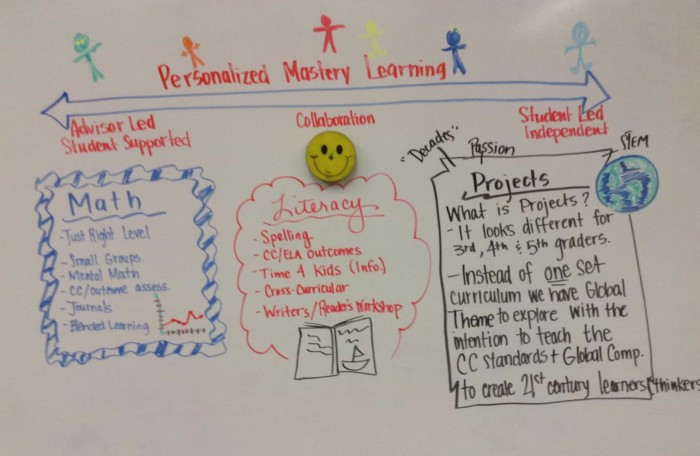 Personalized Mastery Learning
Advisor Led
Student Supported
Collaboration
Student Led
Independent
Math
-Just Right Level
-Small Groups
-Mental Math
-CC/outcome assess.
-Journals
-Blended Learning
Literacy
-Spelling
-CC/ELA outcomes
-Time 4 Kids (Info.)
-Cross-Curricular
-Writer's/Reader's Workshop
"Decades"
Passion
STEM
Projects
What is Projects?
-It looks different for
3rd, 4th & 5th graders.
-Instead of one set
curriculum we have Global
Theme to explore with the
intention to teach the
CC Standards + Global Comp.
to create 21st century learners & thinkers